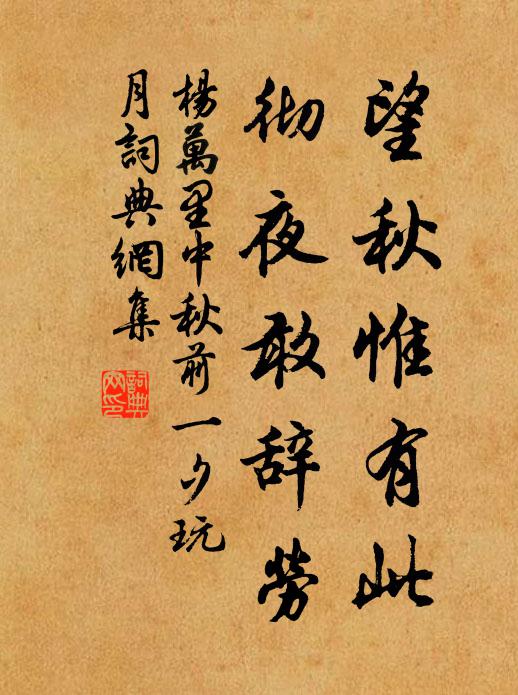 望秋惟有此
彻夜敢辞劳
楊萬里中秋前一夕玩
月詞典網集
詞典
网印